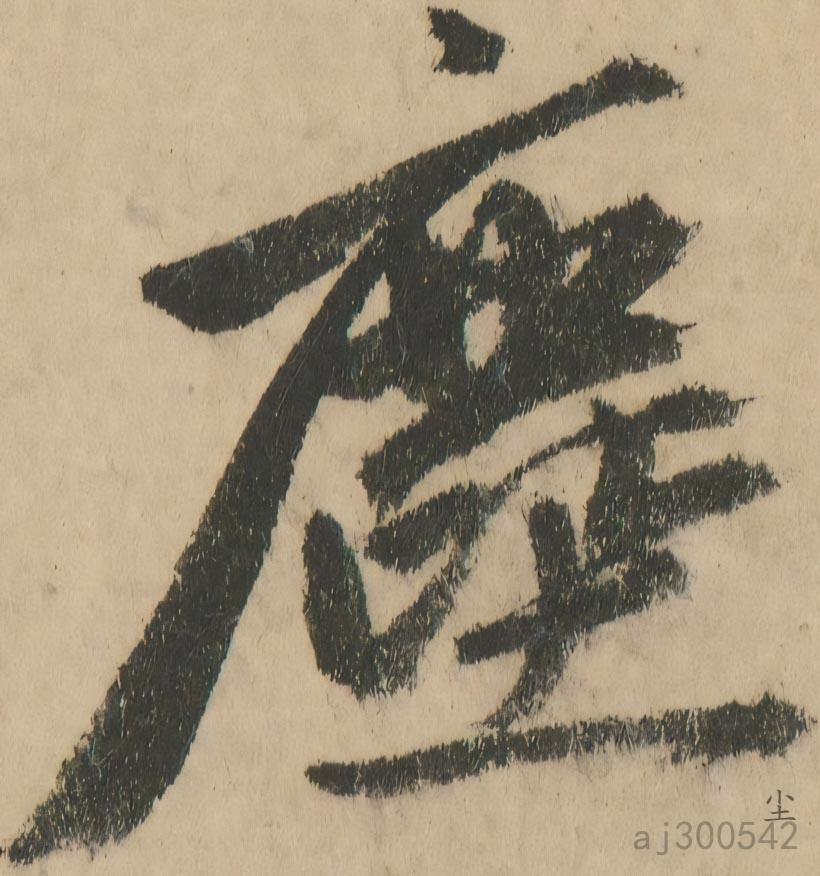 塵
尘
aj300542